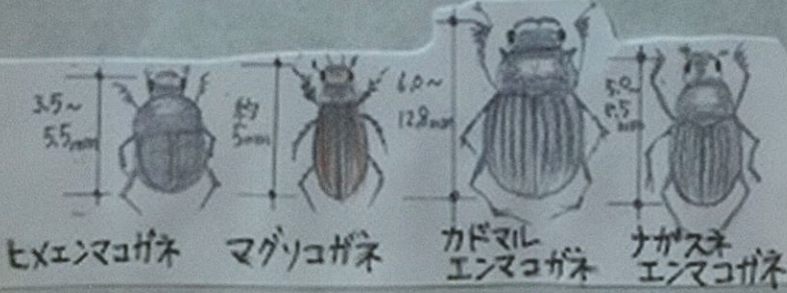 3.5~
5.5mm
ヒメエンマコガネ
約
5mm
マグソコガネ
6.0~
12.8mm
カドマル
エンマコガネ
5.0~
mm
ナガスネ
エンマコガネ